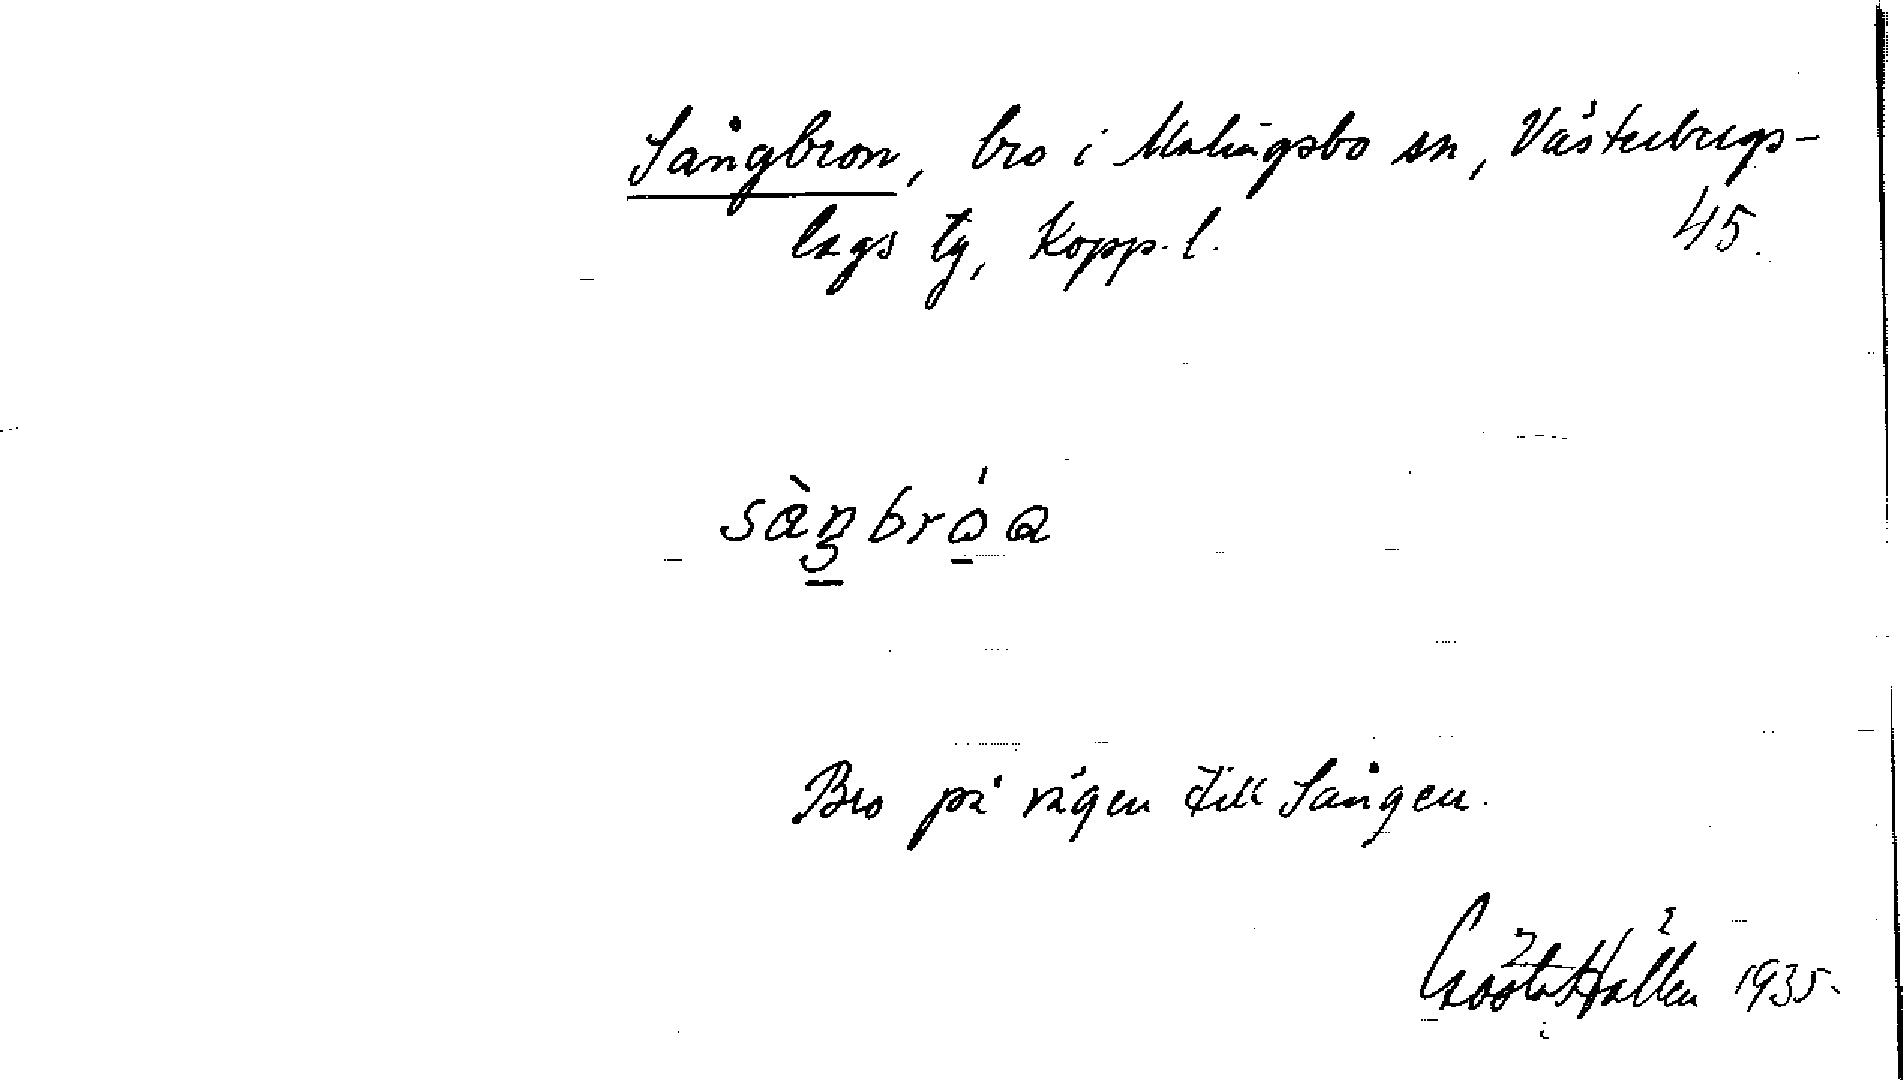 Sångbron, bro i Malingsbo sn, Västerbergs-
lags tg, Kopp. l.
45.
Bro på vägen till Sången.
Gösta Hállen 1935.